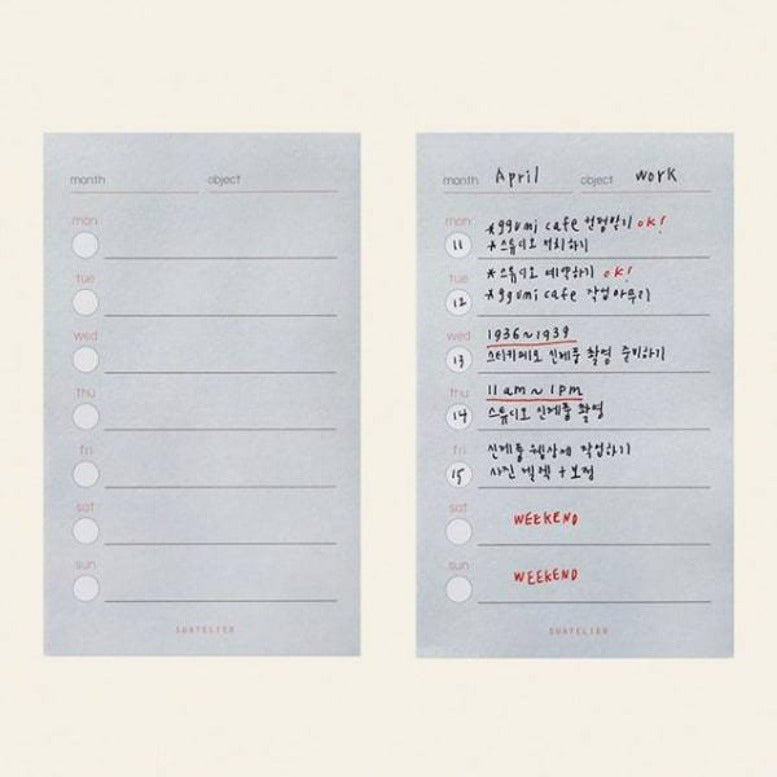 month object
mon
tue
wed
thu
fri
sat
sun
SUATELIER
month April object work
mon 11 *ggumi cafe 컨펌받기 ok!
*스튜디오 서치하기
tue 12 *스튜디오 예약하기 ok!
*ggumi cafe 작업 마무리
wed 13 1936~1939
스티키메모 신제품 촬영 준비하기
thu 14 11am~1pm
스튜디오 신제품 촬영
fri 15 신제품 웹상세 작업하기
사진 셀렉 + 보정
sat WEEKEND
sun WEEKEND
SUATELIER